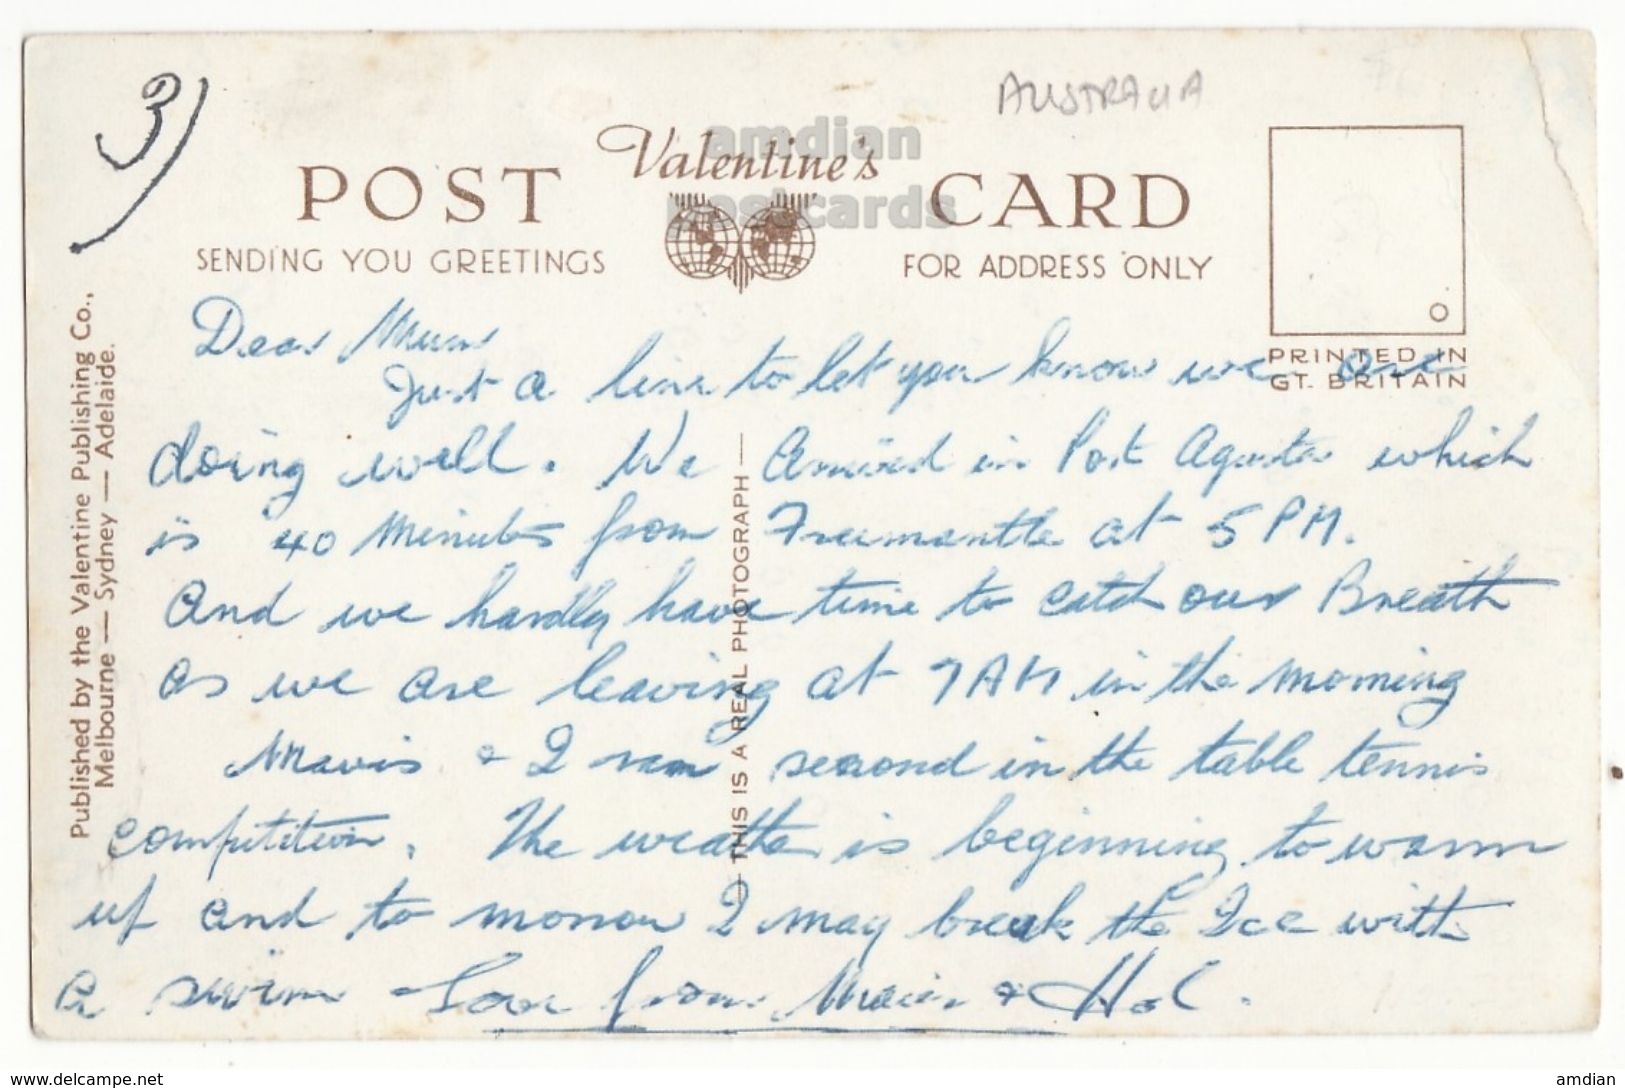 3)
AUSTRALIA
amdian
postcards
Valentine's
POST CARD
SENDING YOU GREETINGS
FOR ADDRESS ONLY
PRINTED IN
GT. BRITAIN
Published by the Valentine Publishing Co.,
Melbourne — Sydney — Adelaide.
— THIS IS A REAL PHOTOGRAPH —
Dear Mum
Just a line to let you know we are
doing well. We Arrived in Port Agusta which
is 40 Minutes from Freemantle at 5 PM.
And we hardly have time to catch our Breath
as we are leaving at 7AM in the morning
Mavis & I ran second in the table tennis
competition. The weather is beginning to warm
up and to morrow I may break the Ice with
a swim Love from Mavis & Hol.
www.delcampe.net
amdian